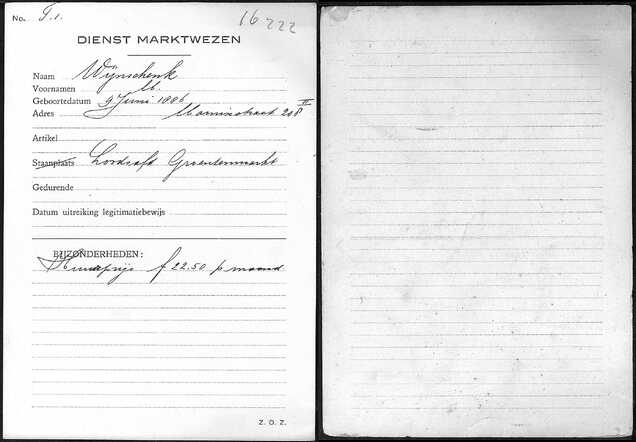 No. T.1. 16222
DIENST MARKTWEZEN
Naam Wijnschenk
Voornamen M.
Geboortedatum 9 Juni 1886
Adres Marnixstraat 208 II
Artikel
Staanplaats Groentenmarkt
Gedurende
Datum uitreiking legitimatiebewijs
BIJZONDERHEDEN:
Huurprijs f 22.50 p maand
Z. O. Z.